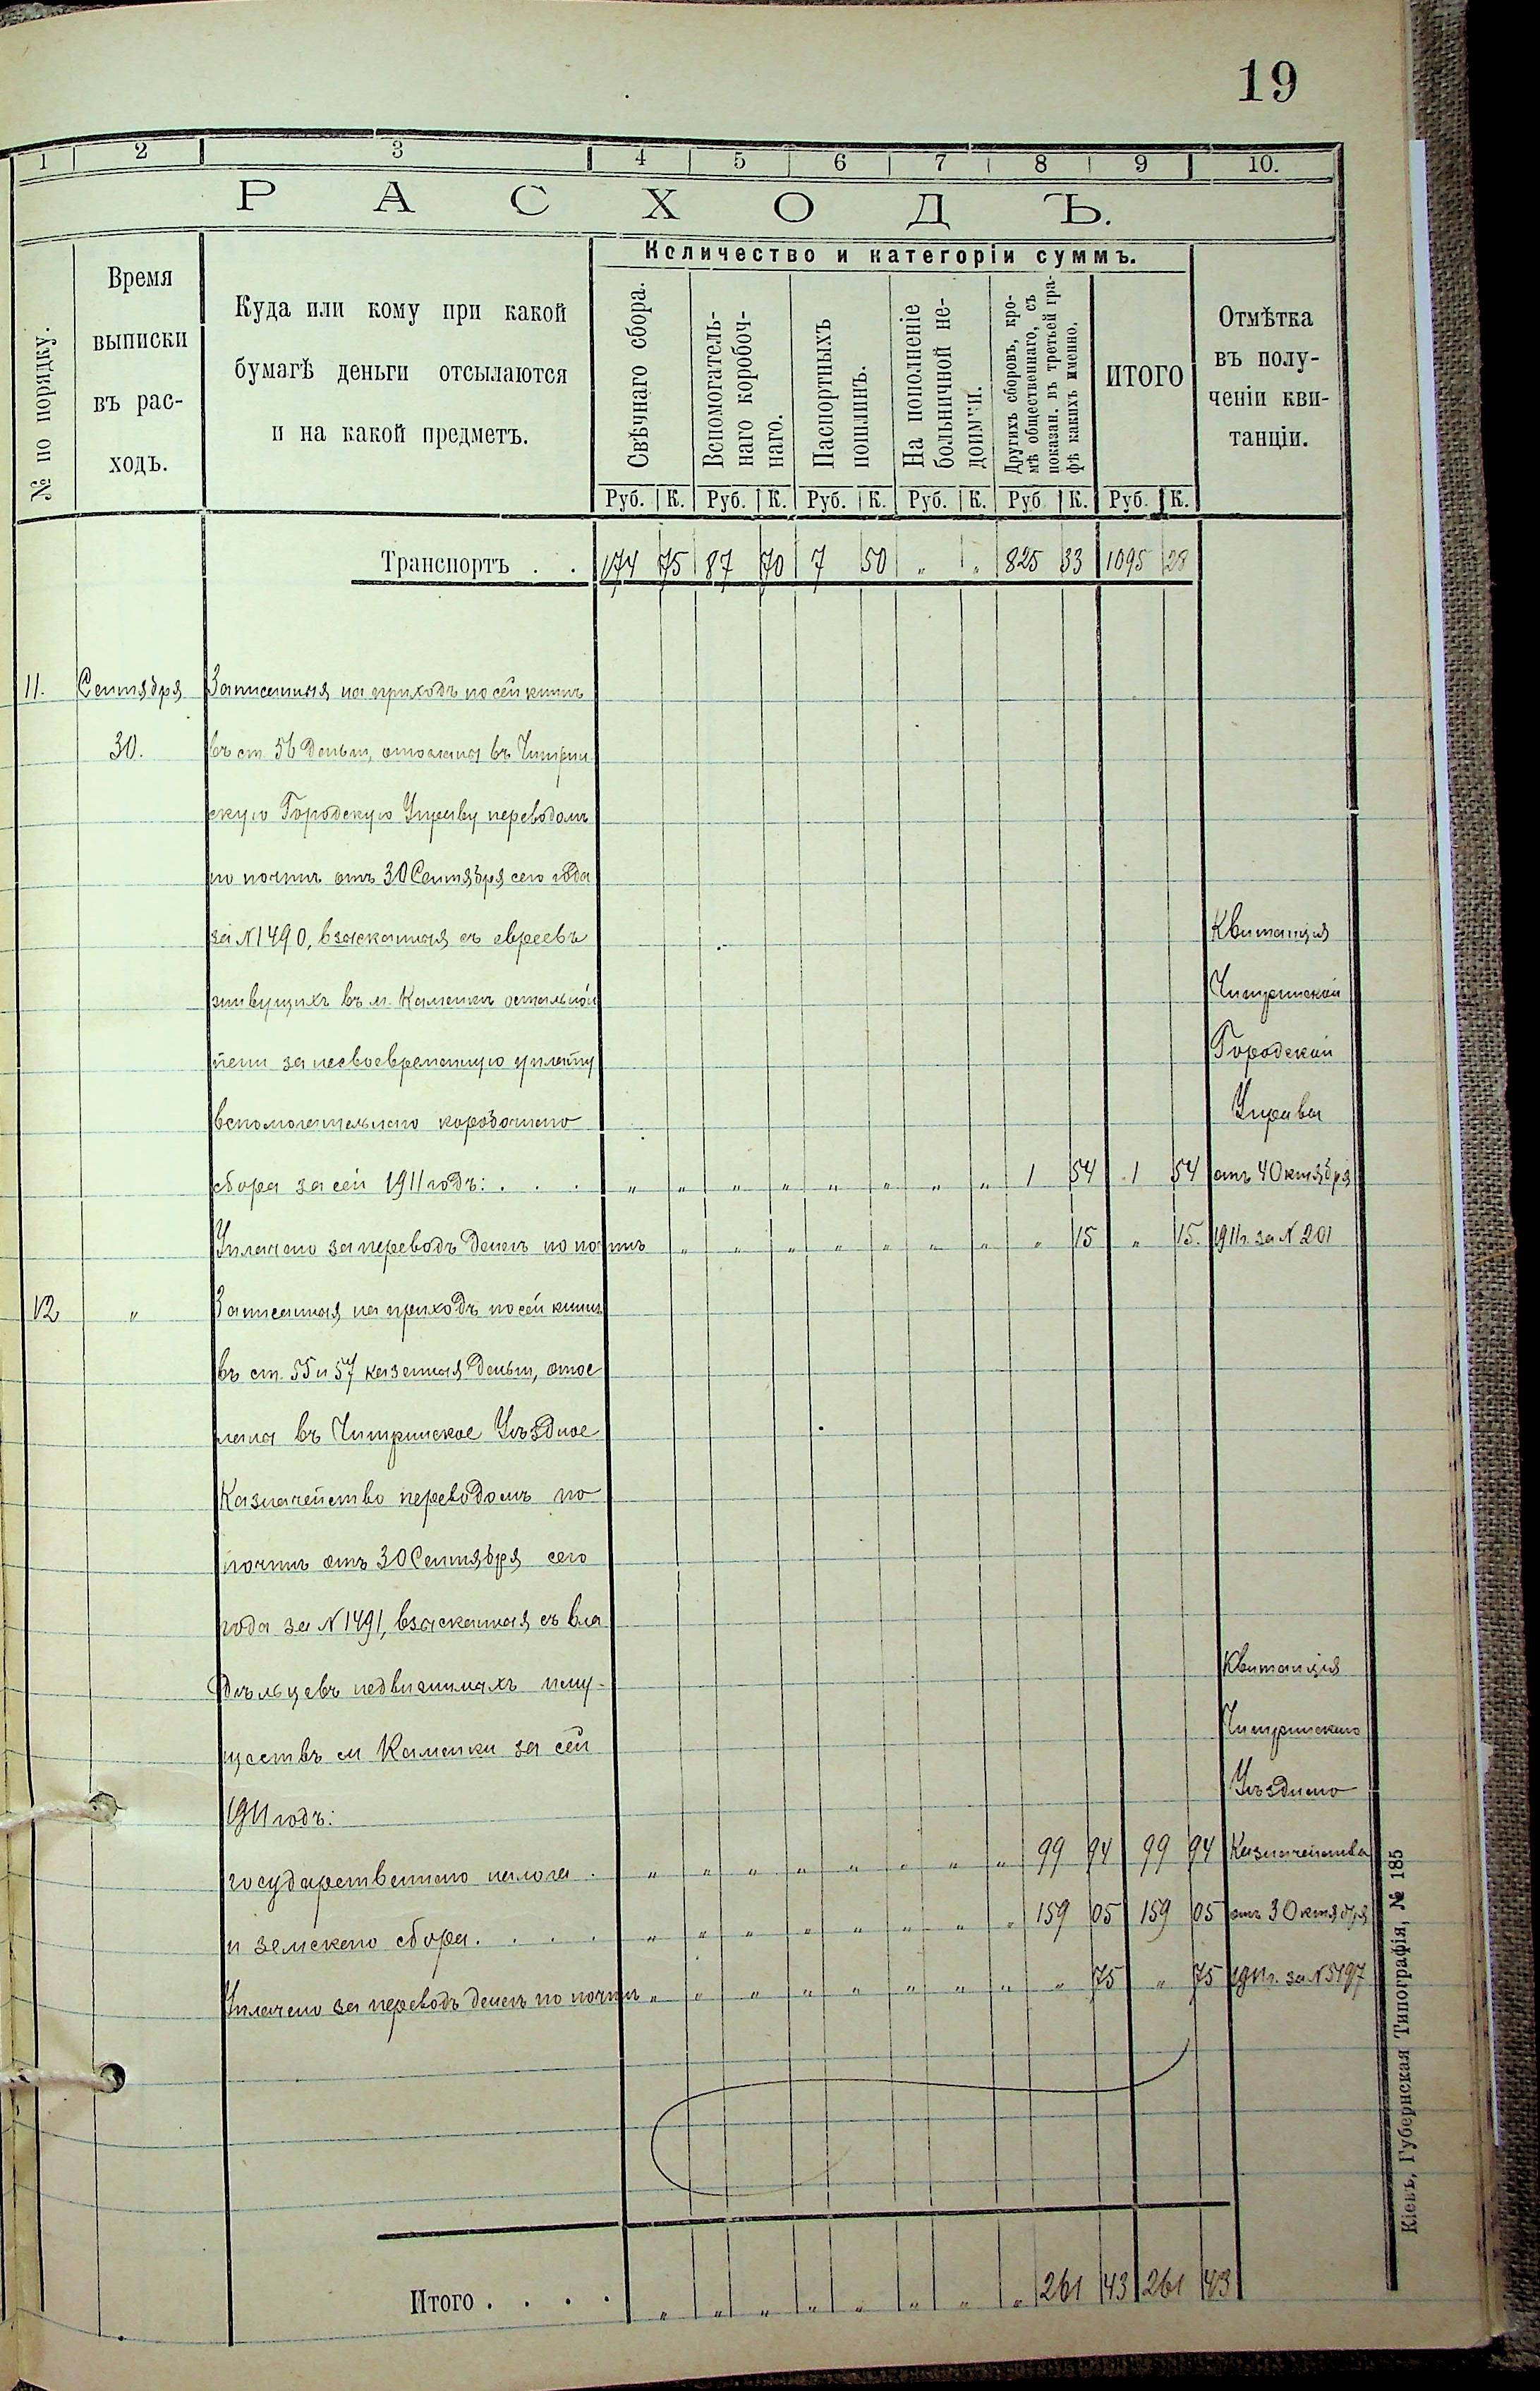 19
1 2 3 4 5 6 7 8 9 10.
РАСХОДЪ.
№ по порядку.
Время
выписки
въ рас-
ходъ.
Куда или кому при какой
бумагѣ деньги отсылаются
и на какой предметъ.
Количество и категоріи суммъ.
Свѣчнаго сбора.
Вспомогатель-
наго коробоч-
наго.
Паспортныхъ
пошлинъ.
На пополненіе
больничной не-
доимки.
Другихъ сборовъ, кро-
мѣ общественнаго, съ
показан. въ третьей гра-
фѣ какихъ именно.
ИТОГО
Отмѣтка
въ полу-
ченіи кви-
танціи.
Руб. К. Руб. К. Руб. К. Руб. К. Руб К. Руб. К.
Транспортъ . . 174 75 87 70 7 50 „ „ 825 33 1095 28
11. Сентября Записанныя на приходъ по сей книгѣ
30. въ ст. 56 деньги, отосланы въ Чигрин
скую Городскую Управу переводомъ
по почтѣ отъ 30 Сентября сего года
за № 1490, взысканныя съ евреевъ Квитанція
живущихъ въ м. Каменкѣ остальной Чигринской
пени за несвоевременную уплату Городской
вспомогательнаго коробочнаго Управы
сбора за сей 1911 годъ: . . . „ „ „ „ „ „ „ „ 1 54 1 54 отъ 4 Октября
Уплачено за переводъ денегъ по почтѣ „ „ „ „ „ „ „ „ 15 „ 15. 1911 г. за № 201
12 „ Записанныя на приходъ по сей книгѣ
въ ст. 55 и 57 казенныя деньги, отос
ланы въ Чигринское Уѣздное
Казначейство переводомъ по
почтѣ отъ 30 Сентября сего
года за № 1491, взысканныя съ вла
дѣльцевъ недвижимыхъ иму- Квитанція
ществъ м Каменки за сей Чигринскаго
1911 годъ: Уѣзднаго
государственнаго налога . „ „ „ „ „ „ „ „ 99 94 99 94 Казначейства
и земскаго сбора . . . . „ „ „ „ „ „ „ „ 159 05 159 05 отъ 3 Октября
Уплачено за переводъ денегъ по почтѣ „ „ „ „ „ „ „ „ „ 75 „ 75 1911 г. за № 5197
Итого . . . . „ „ „ „ „ „ „ „ 261 43 261 43
Кіевъ, Губернская Типографія, № 185